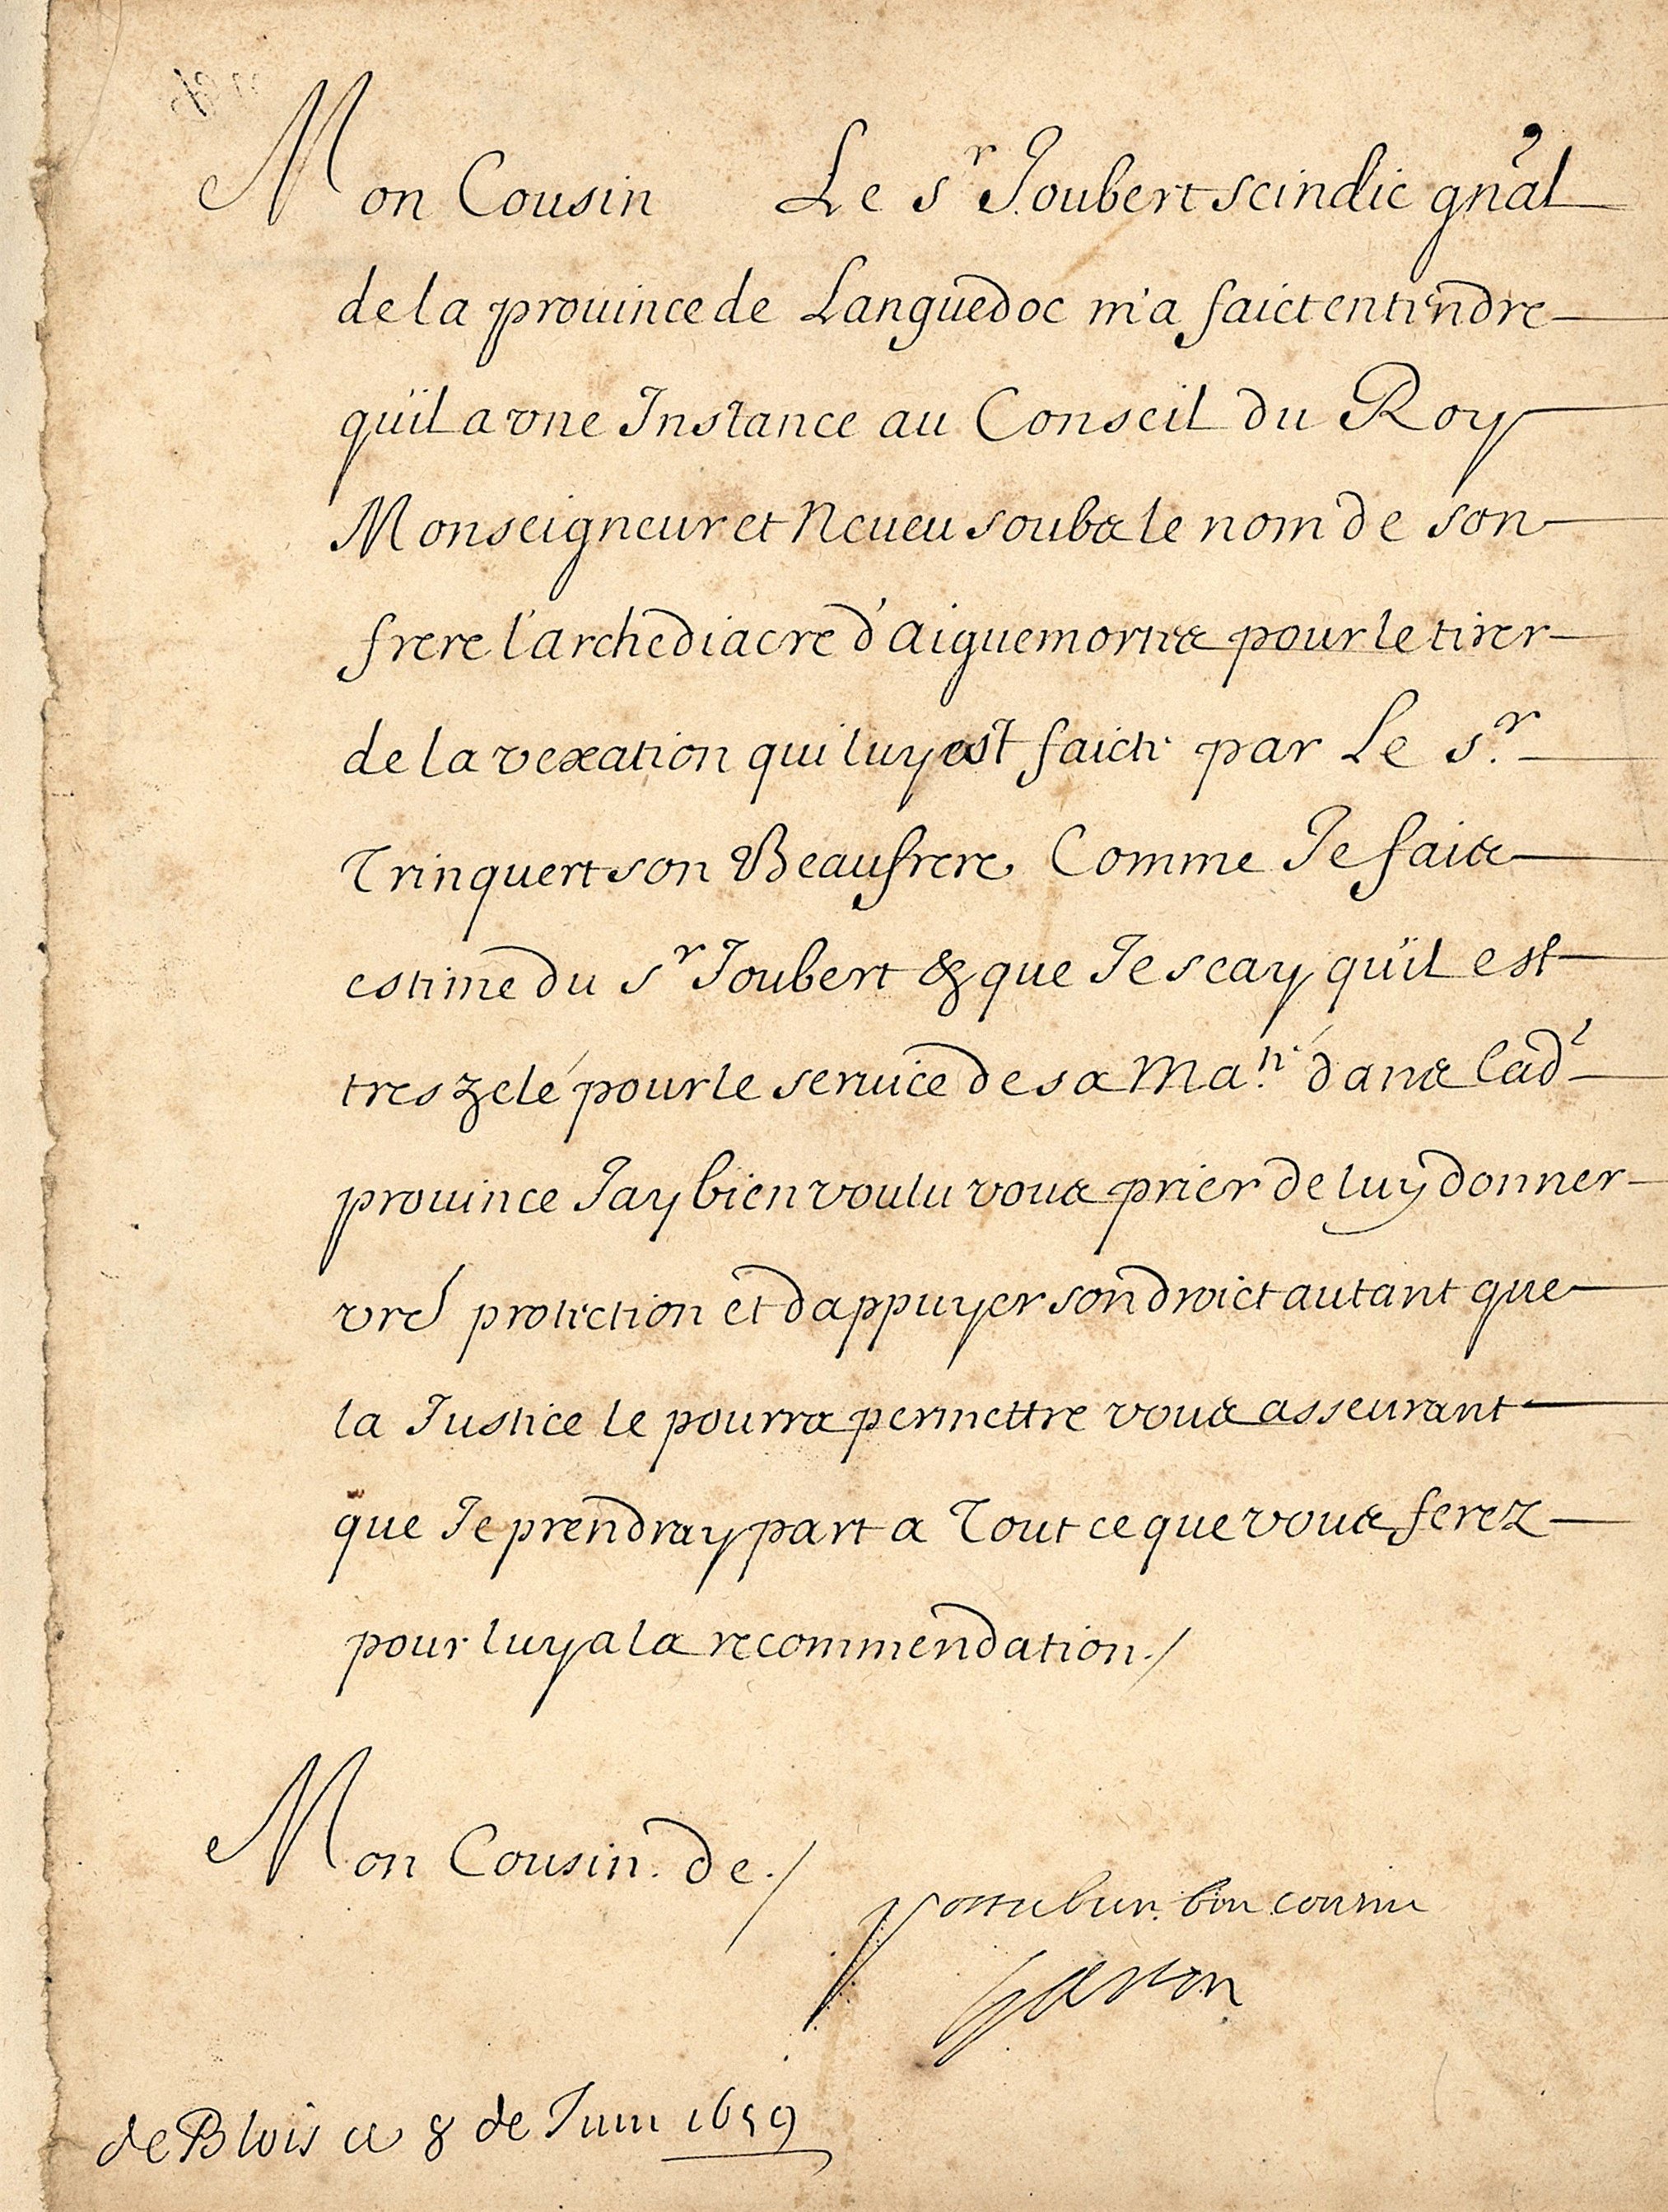 Mon Cousin Le sr Joubert scindic gnãl
de la prouince de Languedoc m'a faict entendre
qu'il a vne Instance au Conseil du Roy
Monseigneur et Neueu soubz le nom de son
frere l'archediacre d'aiguemortes pour le tirer
de la vexation qui luy est faicte par Le sr.
Trinquert son Beaufrere, Comme Je fais
estime du sr Joubert & que Je scay qu'il est
tres zelé pour le seruice de sa Ma.té dans lad.
prouince J'ay bien voulu vous prier de luy donner
vre protection et d'appuyer son droict autant que
la Justice le pourra permettre vous asseurant
que Je prendray part a Tout ce que vous ferez
pour luy a la recommendation./
Mon Cousin. de./
Vostre bien bon cousin
Gaston
de Blois ce 8 de Juin 1659